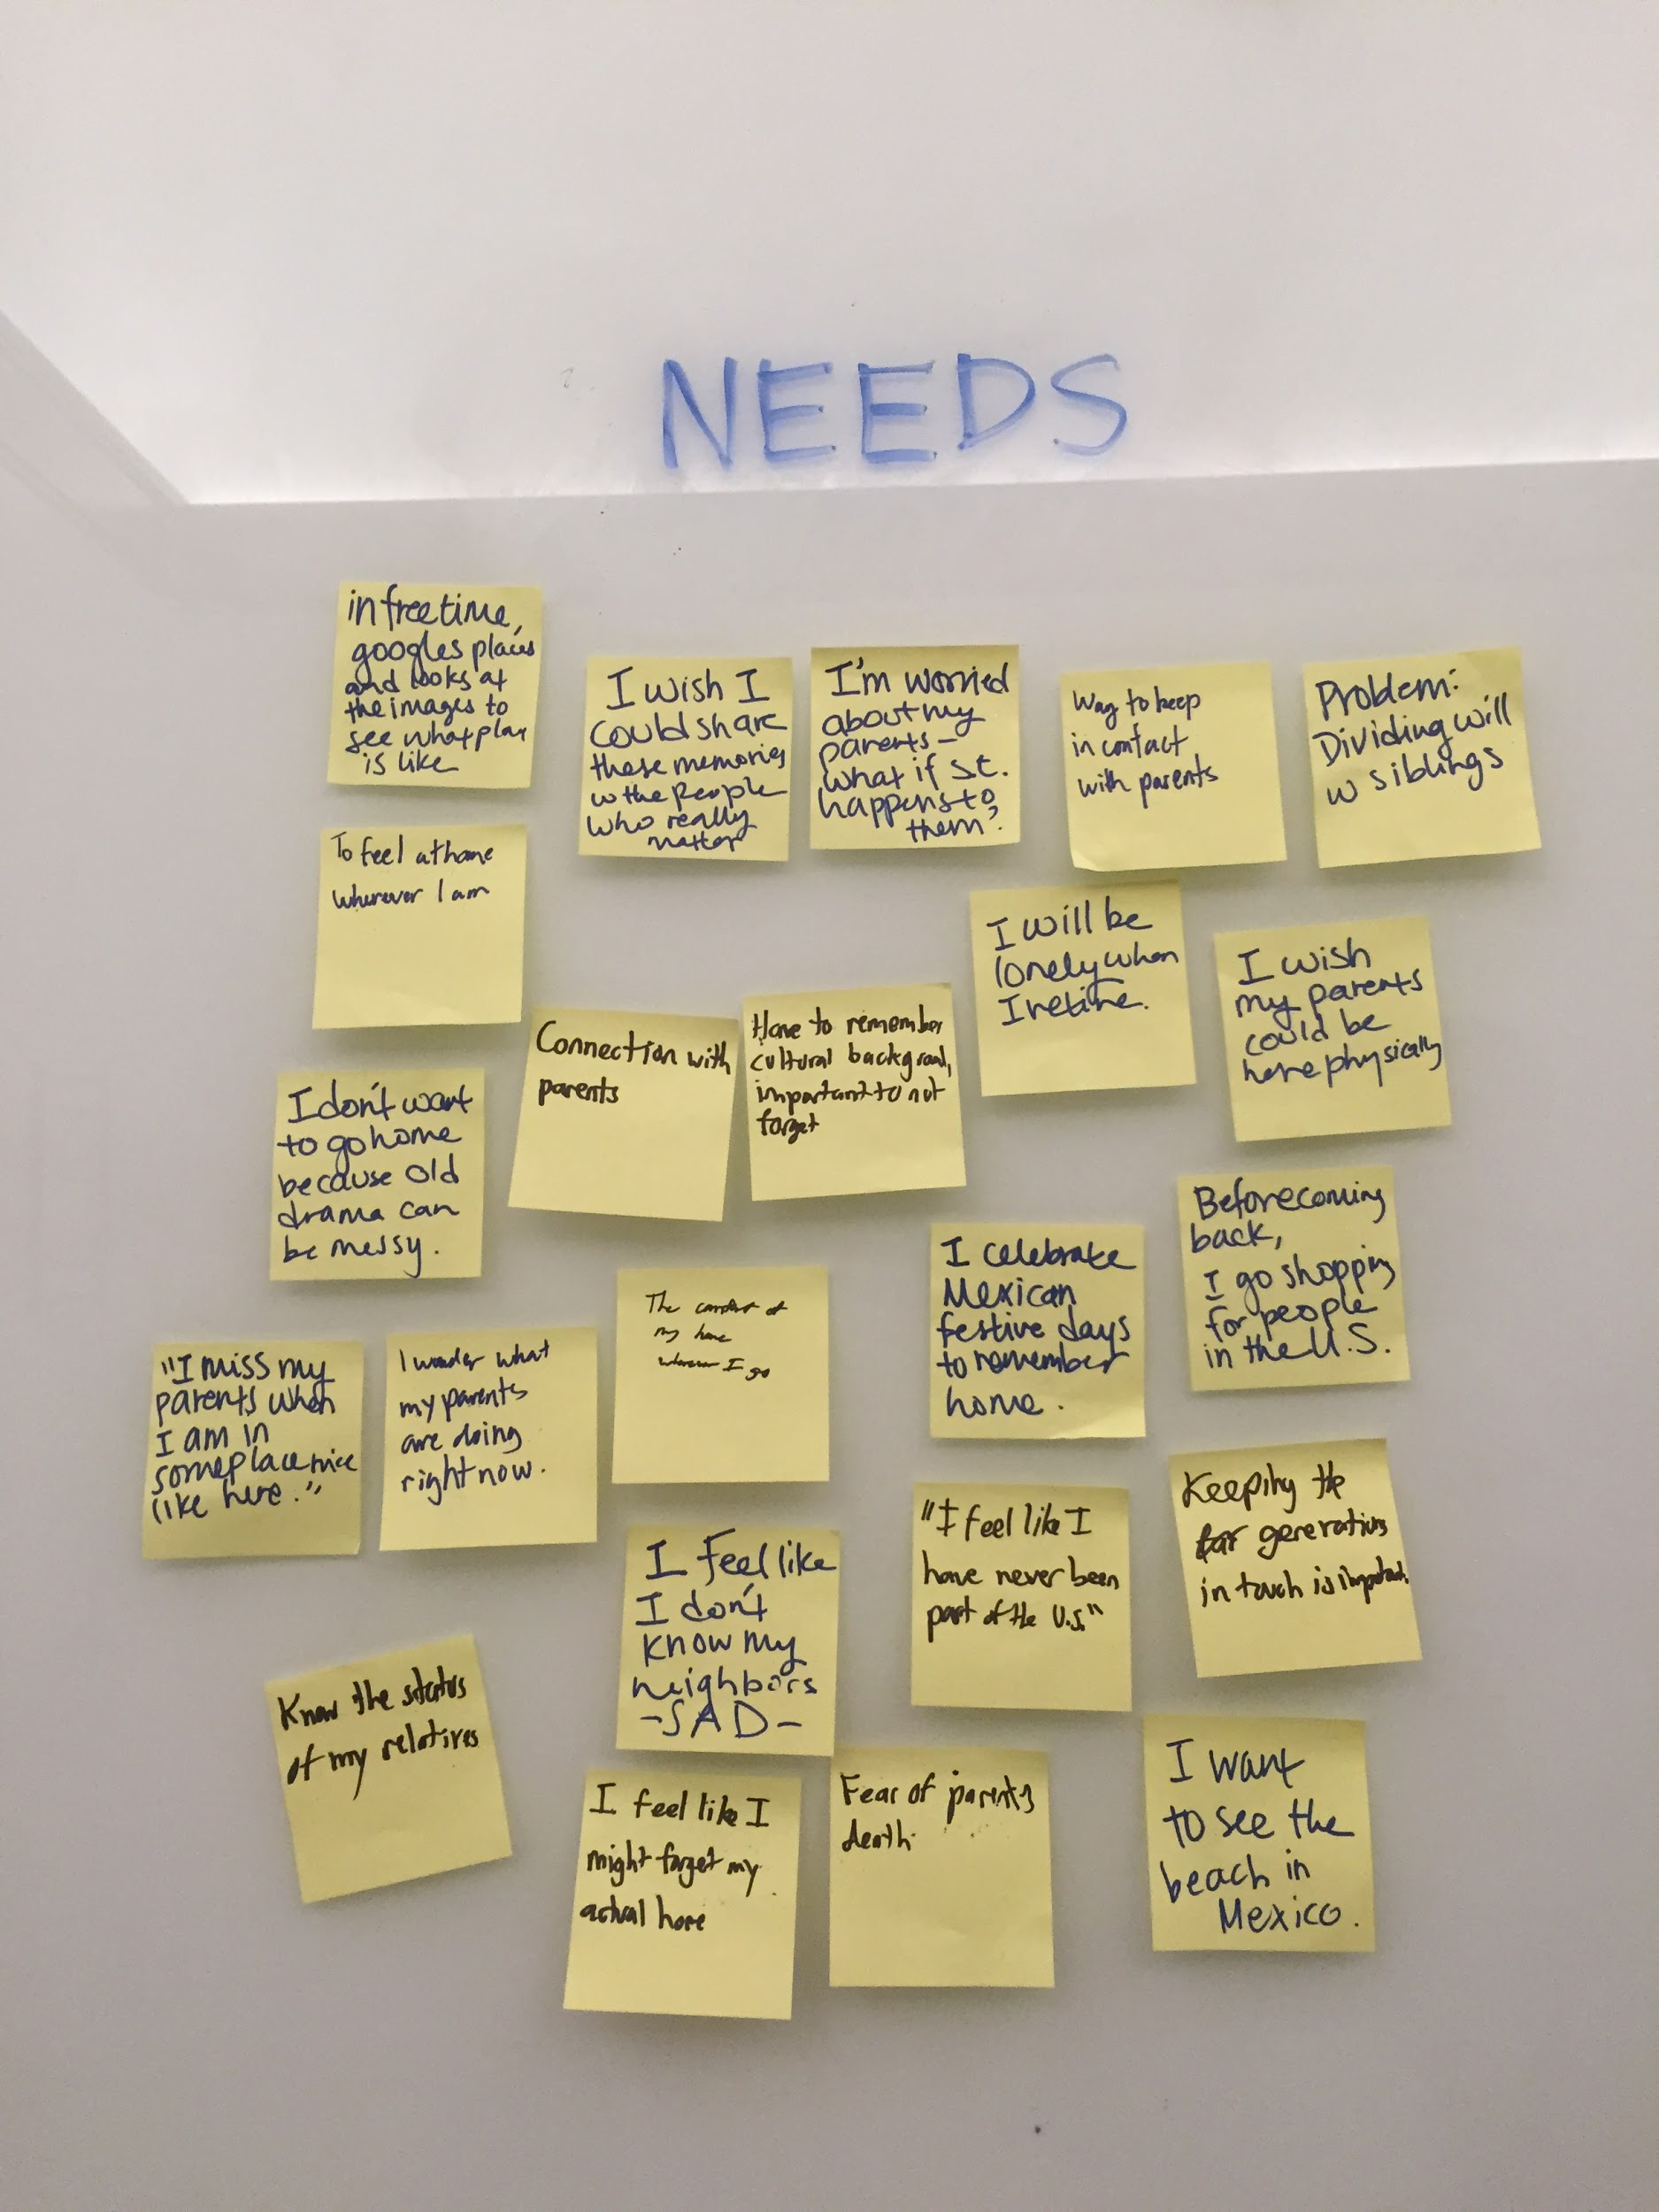 NEEDS
in free time,
googles places
and looks at
the images to
see what
is like
I wish I
could share
these memories
w the people
who really
matter
I'm worried
about my
parents –
what if st.
happens to
them?
Way to keep
in contact
with parents
Problem:
Dividing will
w siblings
To feel at home
wherever I am
I will be
lonely when
I retire.
I wish
my parents
could be
here physically
Connection with
parents
Have to remember
cultural background,
important to not
forget
I don't want
to go home
because old
drama can
be messy.
Before coming
back,
I go shopping
for people
in the U.S.
I celebrate
Mexican
festive days
to remember
home.
The comfort of
my home
wherever I go
"I miss my
parents when
I am in
someplace nice
like here."
I wonder what
my parents
are doing
right now.
Keeping the
generations
in touch is important
"I feel like I
have never been
part of the U.S."
I feel like
I don't
know my
neighbors
-SAD-
Know the status
of my relatives
I want
to see the
beach in
Mexico.
Fear of parents
death
I feel like I
might forget my
actual home